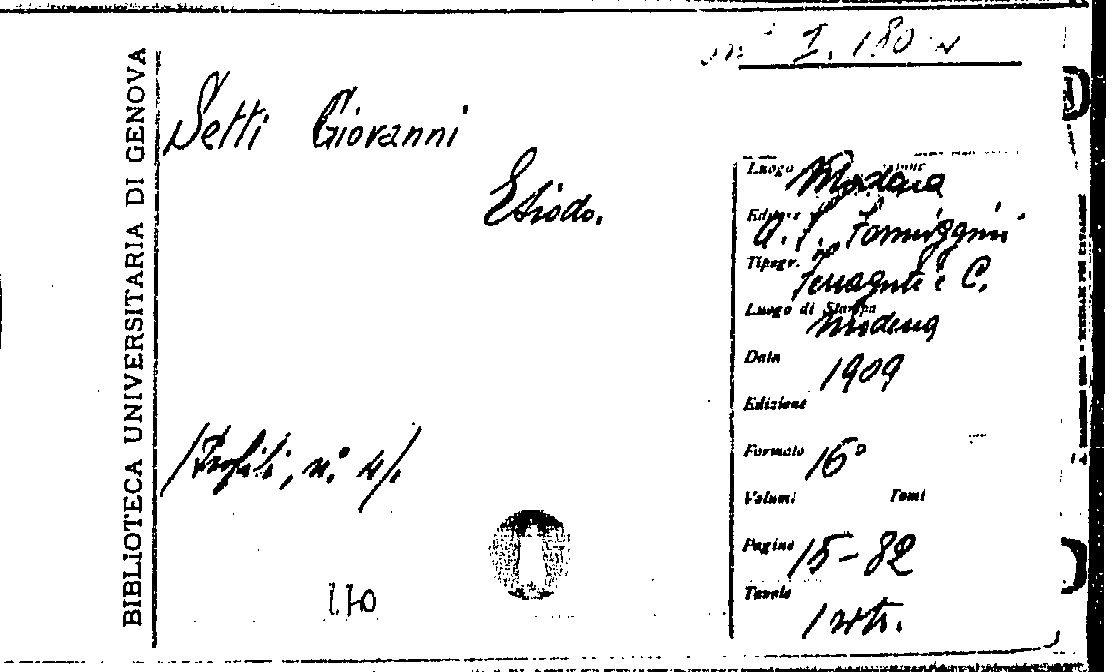 BIBLIOTECA UNIVERSITARIA DI GENOVA
I. 180
Setti Giovanni
Esiodo.
Luogo Modena
Editore A. F. Formiggini
Tipogr. Ferraguti e C.
Luogo di Stampa Modena
Data 1909
Edizione
Formato 16°
Volumi Tomi
Pagine 15-82
Tavole 1 rtr.
/Profili, n.° 4/.